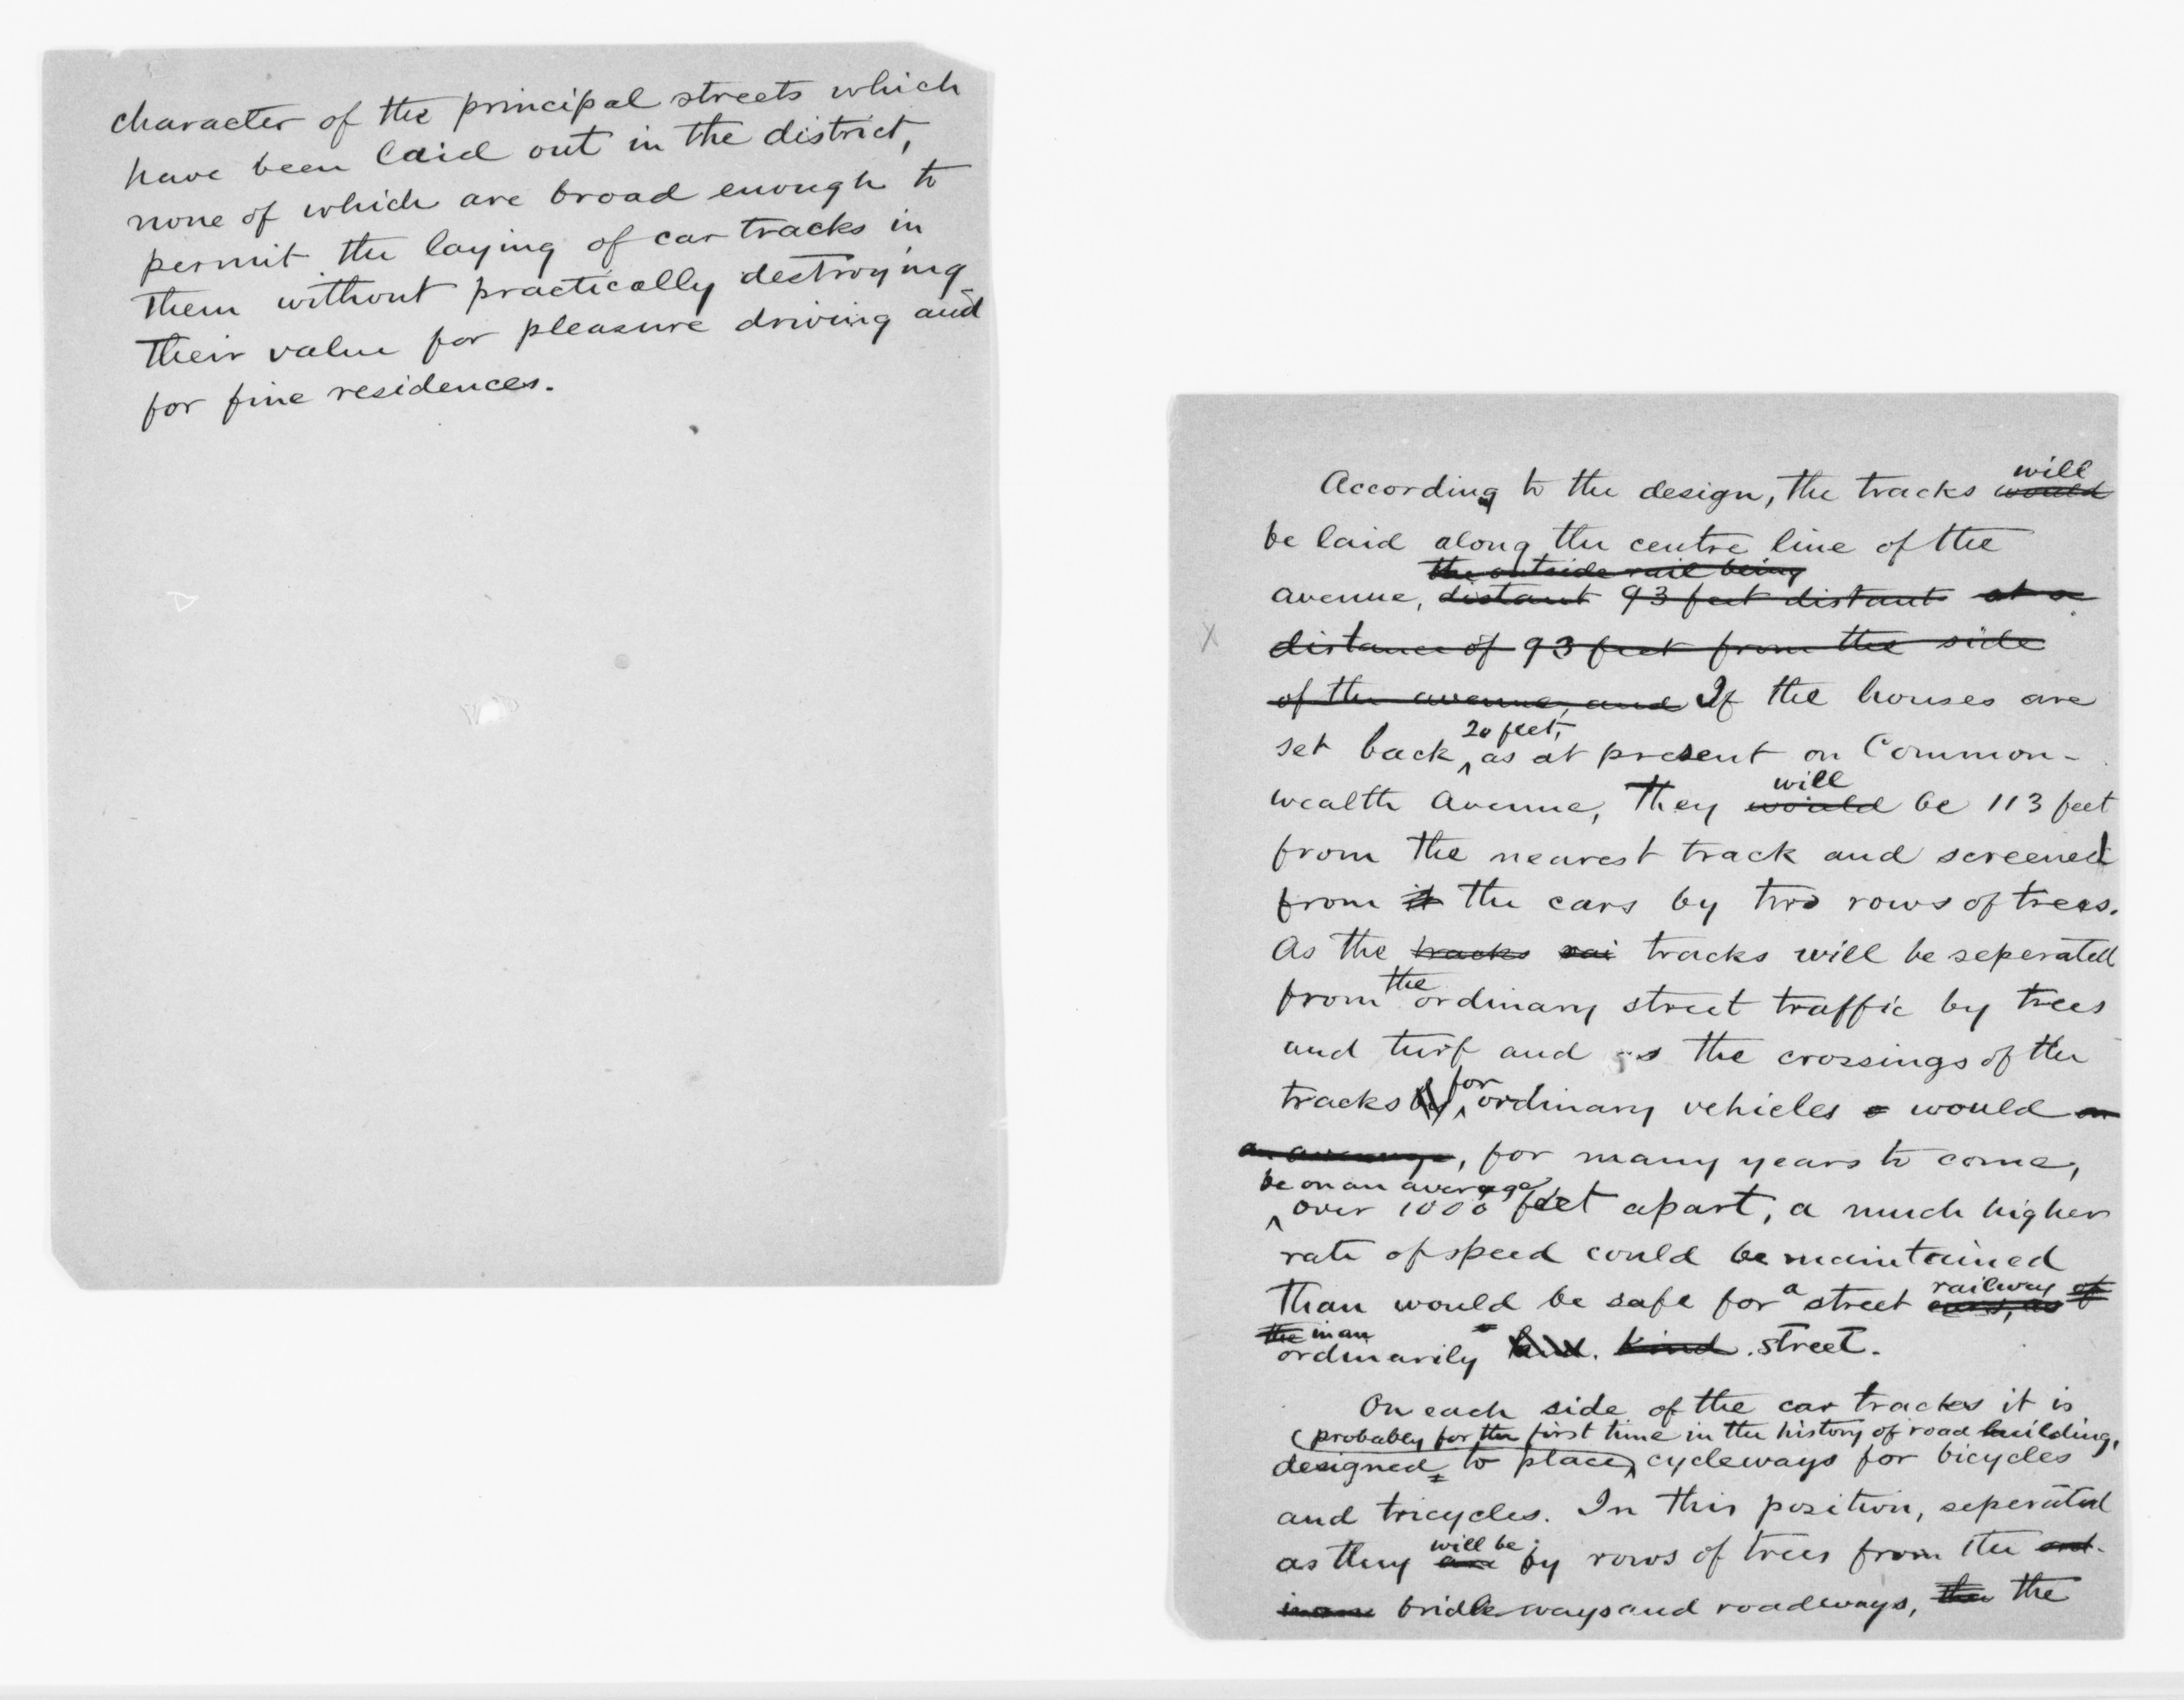 character of the principal streets which
have been laid out in the district,
none of which are broad enough to
permit the laying of car tracks in
them without practically destroying
their value for pleasure driving and
for fine residences.
will
According to the design, the tracks would
be laid along the centre line of the
the outside rail being
avenue, distant 93 feet distant at a
distance of 93 feet from the side
of the avenue, and If the houses are
20 feet,
set back as at present on Common-
will
wealth Avenue, they would be 113 feet
from the nearest track and screened
from it the cars by two rows of trees.
As the tracks rai tracks will be seperated
the
from ordinary street traffic by trees
and turf and as the crossings of the
for
tracks by ordinary vehicles would
an average, for many years to come,
be on an average
over 1000 feet apart, a much higher
rate of speed could be maintained
a railway of
than would be safe for street cars, as
the in an
ordinarily kind street.
On each side of the car tracks it is
(probably for the first time in the history of road building,
designed to place, cycleways for bicycles
and tricycles. In this position, seperated
will be
as they are by rows of trees from the
bridle ways and roadways, the the